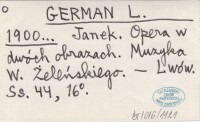 GERMAN L.
1900... Janek. Opera w
dwóch obrazach. Muzyka
W. Żeleńskiego. — Lwów.
Ss. 44, 16°.